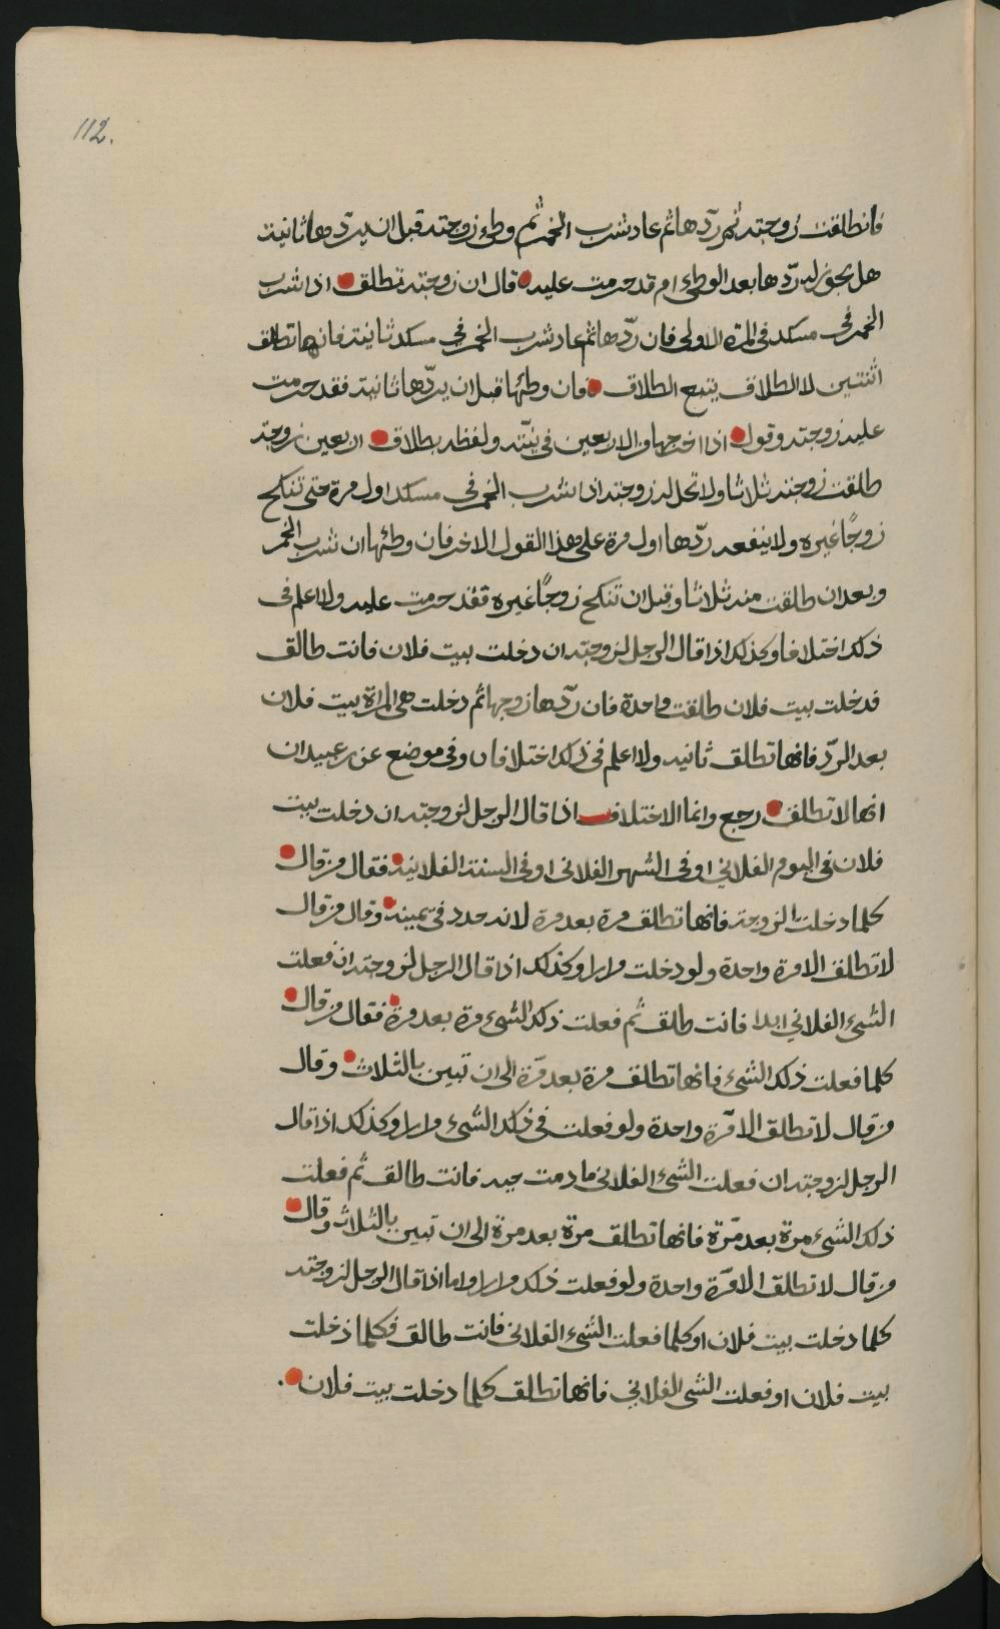 112.
فانطلقت زوجته ثم ردّها ثم عاد شرب الخمر ثم وطئ زوجته قبل ان يردّها ثانية
هل يجوز له ردّها بعد الوطئ ام قد حرمت عليه قال ان زوجته تطلق اذا شرب
الخمر في مسكد في المرة الاولى فان ردّها ثم عاد شرب الخمر في مسكد ثانية فانها تطلق
اثنتين لا الطلاق يتبع الطلاق فان وطئها قبل ان يردّها ثانية فقد حرمت
عليه زوجته وقول اذا الاربعين في نيّته ولفظه بطلاق اربعين زوجته
طلقت زوجته ثلاثا ولا تحل له زوجته اذا شرب الخمر في مسكد اول مرة حتى تنكح
زوجًا غيره ولا ينفعه ردّها اول مرة على هذا القول الاخر فان وطئها ان شرب الخمر
وبعد ان طلقت منه ثلاثا وقبل ان تنكح زوجًا غيره فقد حرمت عليه ولا اعلم في
ذلك اختلافا وكذلك اذا قال الرجل لزوجته ان دخلت بيت فلان فانت طالق
فدخلت بيت فلان طلقت واحدة فان ردّها زوجها ثم دخلت هى المراة بيت فلان
بعد الردّ فانها تطلق ثانيه ولا اعلم في ذلك اختلافا وفى موضع عن عبيدان
انها لا تطلق رجع وانما الاختلاف اذا قال الرجل لزوجته ان دخلت بيت
فلان في اليوم الفلاني او فى الشهر الفلانى او فى السنة الفلانية فقال من قال
كلما دخلت الزوجة فانها تطلق مرة بعد مرة لانه حدد في يمينه وقال من قال
لا تطلق الا مرة واحدة ولو دخلت مرارا وكذلك اذا قال الرجل لزوجته ان فعلت
الشىء الفلاني ابدا فانت طلق ثم فعلت ذلك الشىء مرة بعد مرة فقال من قال
كلما فعلت ذلك الشىء فانها تطلق مرة بعد مرّة الى ان تبين بالثلاث وقال
من قال لا تطلق الا مرّة واحدة ولو فعلت في ذلك الشىء مرارا وكذلك اذا قال
الرجل لزوجته ان فعلت الشىء الفلانى ما دمت حيه فانت طالق ثم فعلت
ذلك الشىء مرة بعد مرّة فانها تطلق مرة بعد مرة الى ان تبين بالثلاث وقال
من قال لا تطلق الا مرّة واحدة ولو فعلت ذلك مرارا واما اذا قال الرجل لزوجته
كلما دخلت بيت فلان او كلما فعلت الشىء الفلانى فانت طالق فكلما دخلت
بيت فلان او فعلت الشى الفلاني فانها تطلق كلما دخلت بيت فلان